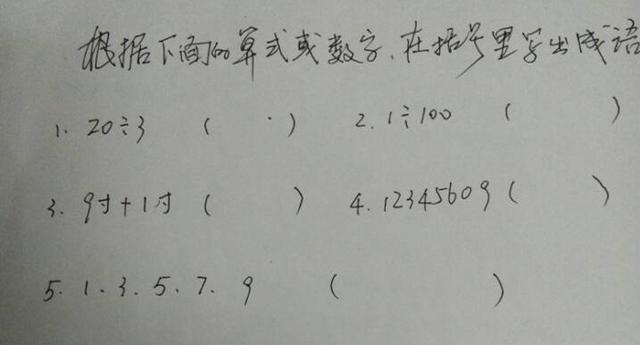 根据下面的算式或数字,在括号里写出成语
1. 20÷3 ( ) 2. 1÷100 ( )
3. 9寸+1寸 ( ) 4. 12345609 ( )
5. 1、3、5、7、9 ( )